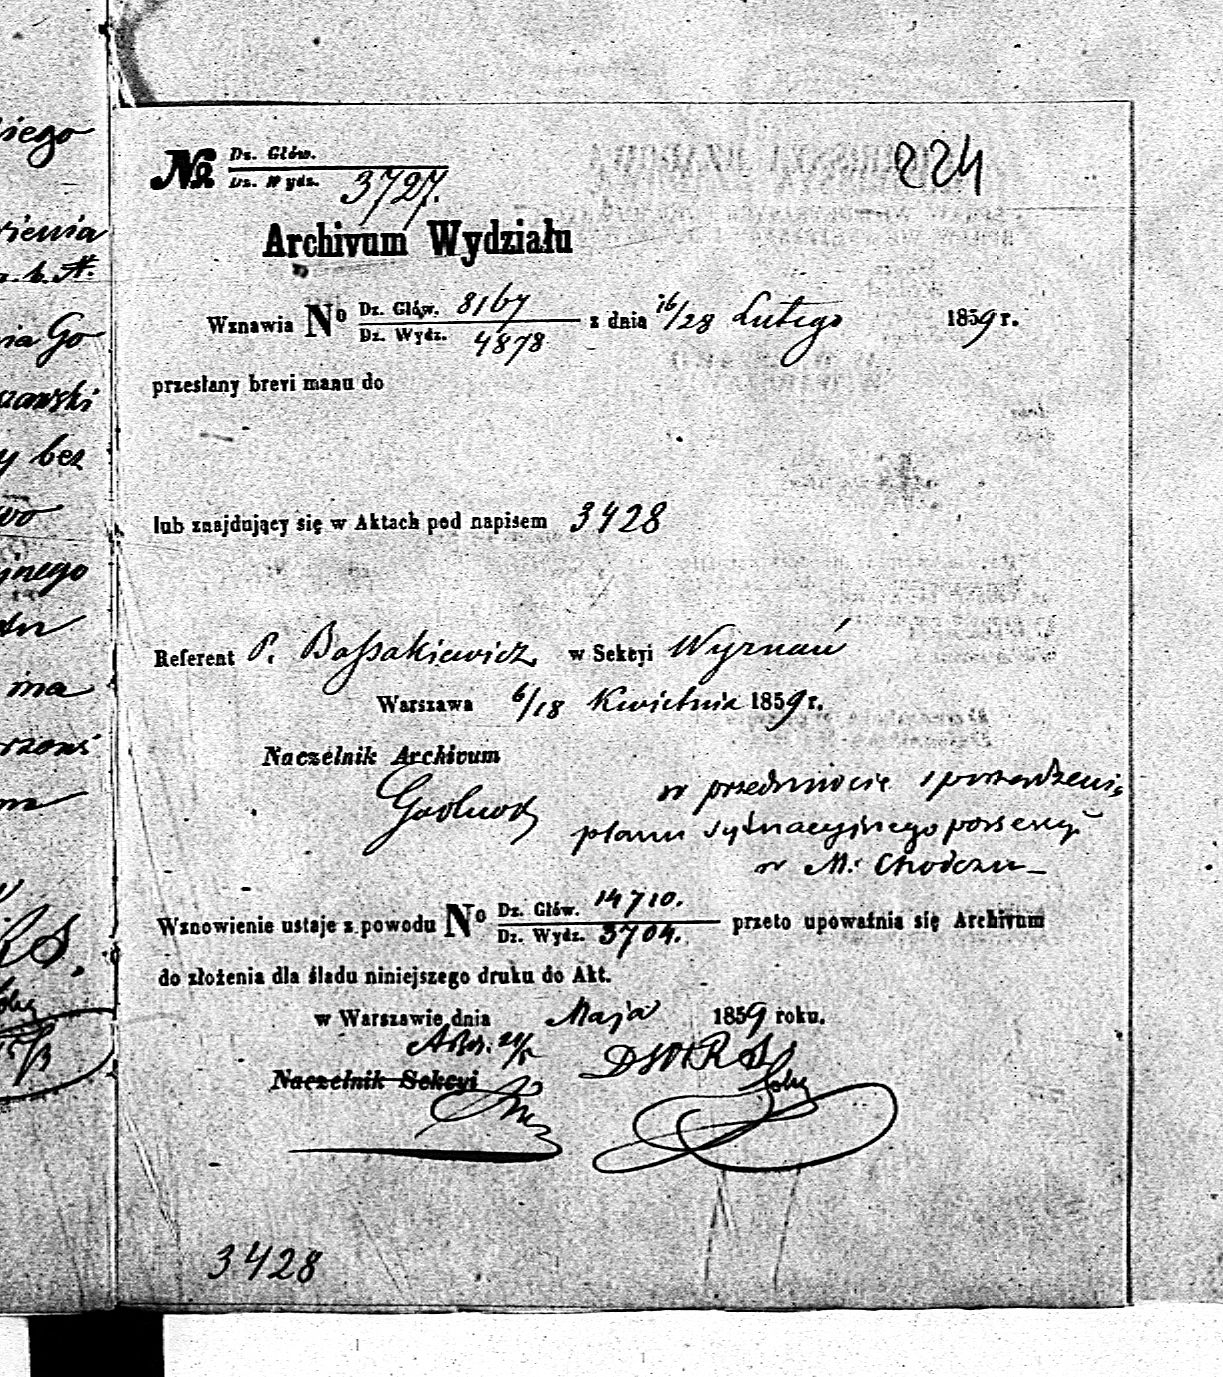 224
№ Dz. Głów.
Dz. Wydz. 3727.
Archivum Wydziału
Wznawia No Dz. Głów. 8167
Dz. Wydz. 4878 z dnia 16/28 Lutego 1859 r.
przesłany brevi manu do
lub znajdujący się w Aktach pod napisem 3428
Referent P. Bossakiewicz w Sekcyi Wyznań
Warszawa 6/18 Kwietnia 1859 r.
Naczelnik Archivum
w przedmiocie sporządzenia
planu sytuacyjnego
w M. Chodczu
Wznowienie ustaje z powodu No Dz. Głów. 14710.
Dz. Wydz. 3704. przeto upoważnia się Archivum
do złożenia dla śladu niniejszego druku do Akt.
w Warszawie dnia Maja 1859 roku.
Naczelnik Sekcyi
3428
iego
wienia
Go
bez
wo
jnego
ma